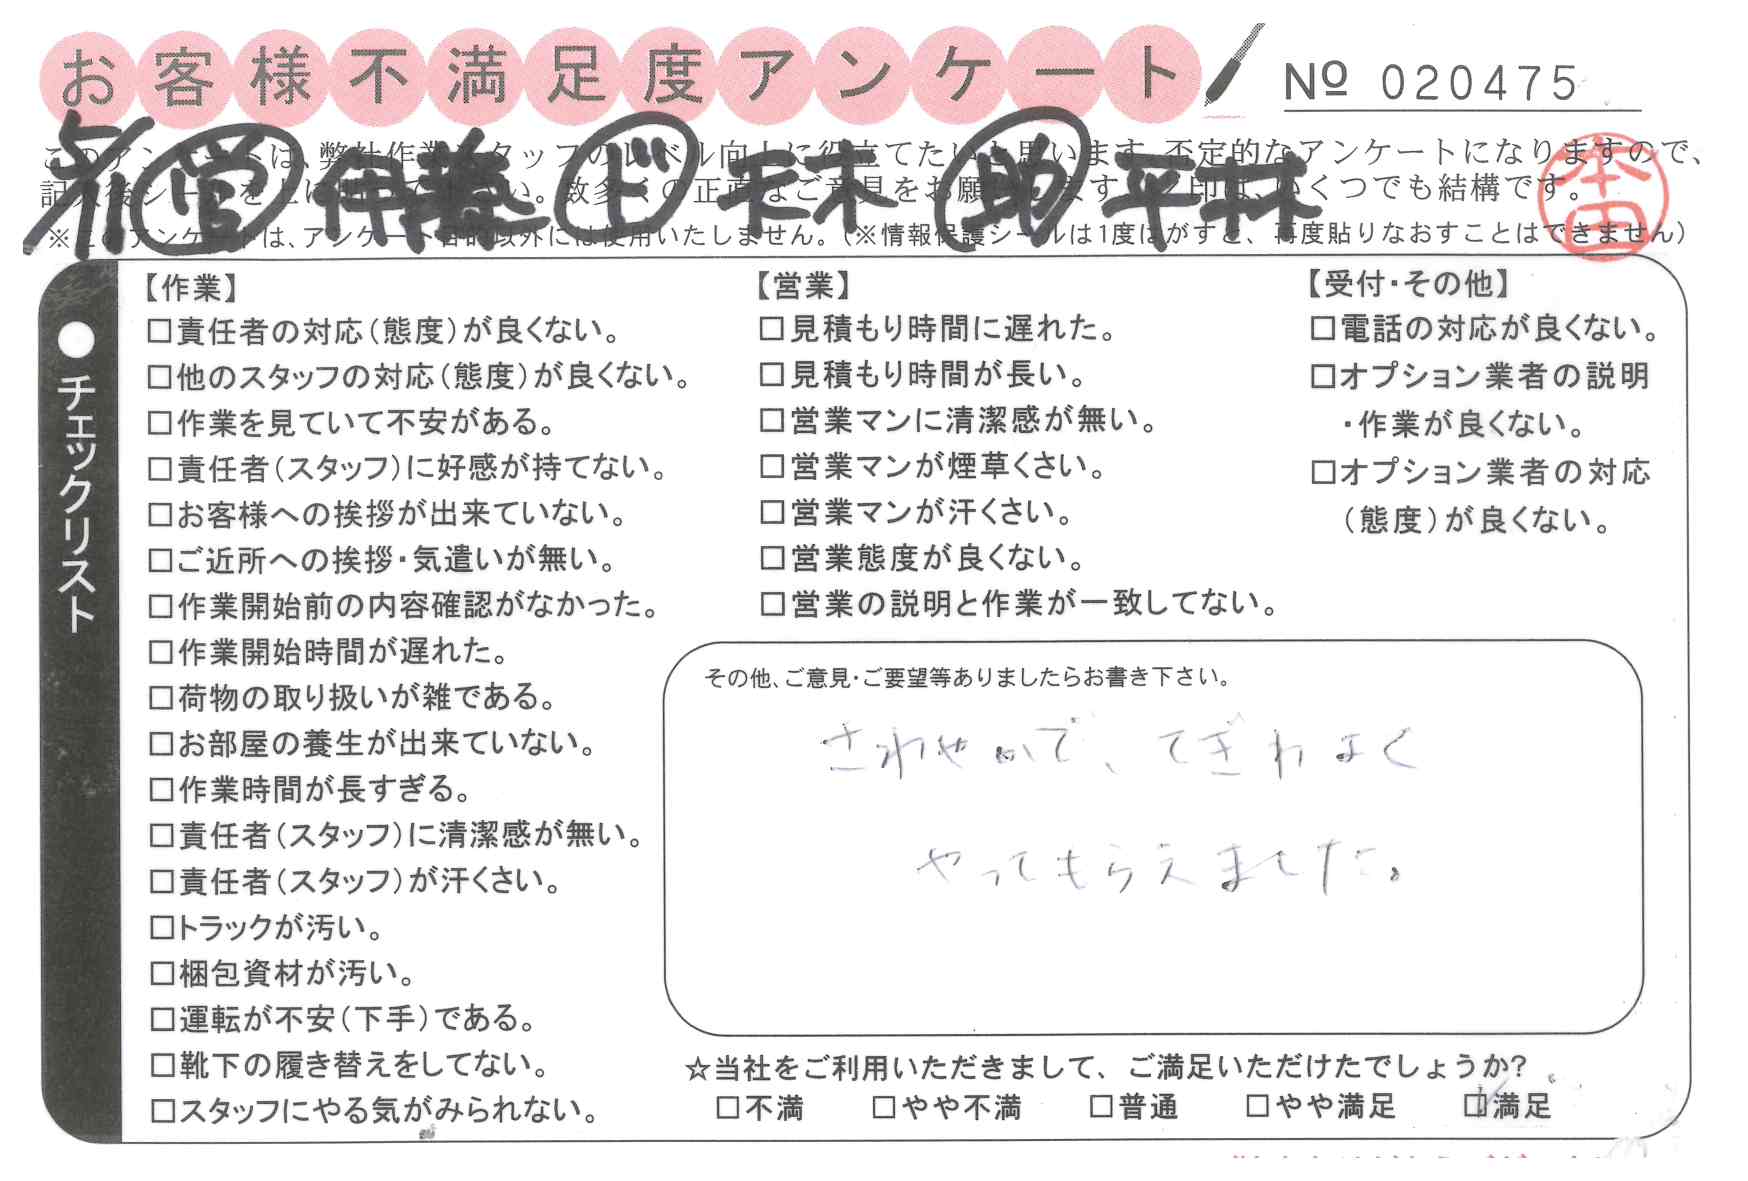 お客様不満足度アンケート
№ 020475
このアンケートは、弊社作業スタッフのレベル向上に役立てたいと思います。不定的なアンケートになりますので、
記入後シールを上に貼って下さい。数多くの正直なご意見をお願いします。レ印は、いくつでも結構です。
※このアンケートは、アンケート目的以外には使用いたしません。(※情報保護シールは1度はがすと、再度貼りなおすことはできません)
営 伊藤 ド 末木 助 平林
本田
●チェックリスト
【作業】
□責任者の対応(態度)が良くない。
□他のスタッフの対応(態度)が良くない。
□作業を見ていて不安がある。
□責任者(スタッフ)に好感が持てない。
□お客様への挨拶が出来ていない。
□ご近所への挨拶・気遣いが無い。
□作業開始前の内容確認がなかった。
□作業開始時間が遅れた。
□荷物の取り扱いが雑である。
□お部屋の養生が出来ていない。
□作業時間が長すぎる。
□責任者(スタッフ)に清潔感が無い。
□責任者(スタッフ)が汗くさい。
□トラックが汚い。
□梱包資材が汚い。
□運転が不安(下手)である。
□靴下の履き替えをしてない。
□スタッフにやる気がみられない。
【営業】
□見積もり時間に遅れた。
□見積もり時間が長い。
□営業マンに清潔感が無い。
□営業マンが煙草くさい。
□営業マンが汗くさい。
□営業態度が良くない。
□営業の説明と作業が一致してない。
【受付・その他】
□電話の対応が良くない。
□オプション業者の説明
・作業が良くない。
□オプション業者の対応
(態度)が良くない。
その他、ご意見・ご要望等ありましたらお書き下さい。
さわやかで、てぎわよく
やってもらえました。
☆当社をご利用いただきまして、ご満足いただけたでしょうか?
□不満 □やや不満 □普通 □やや満足 ☑満足